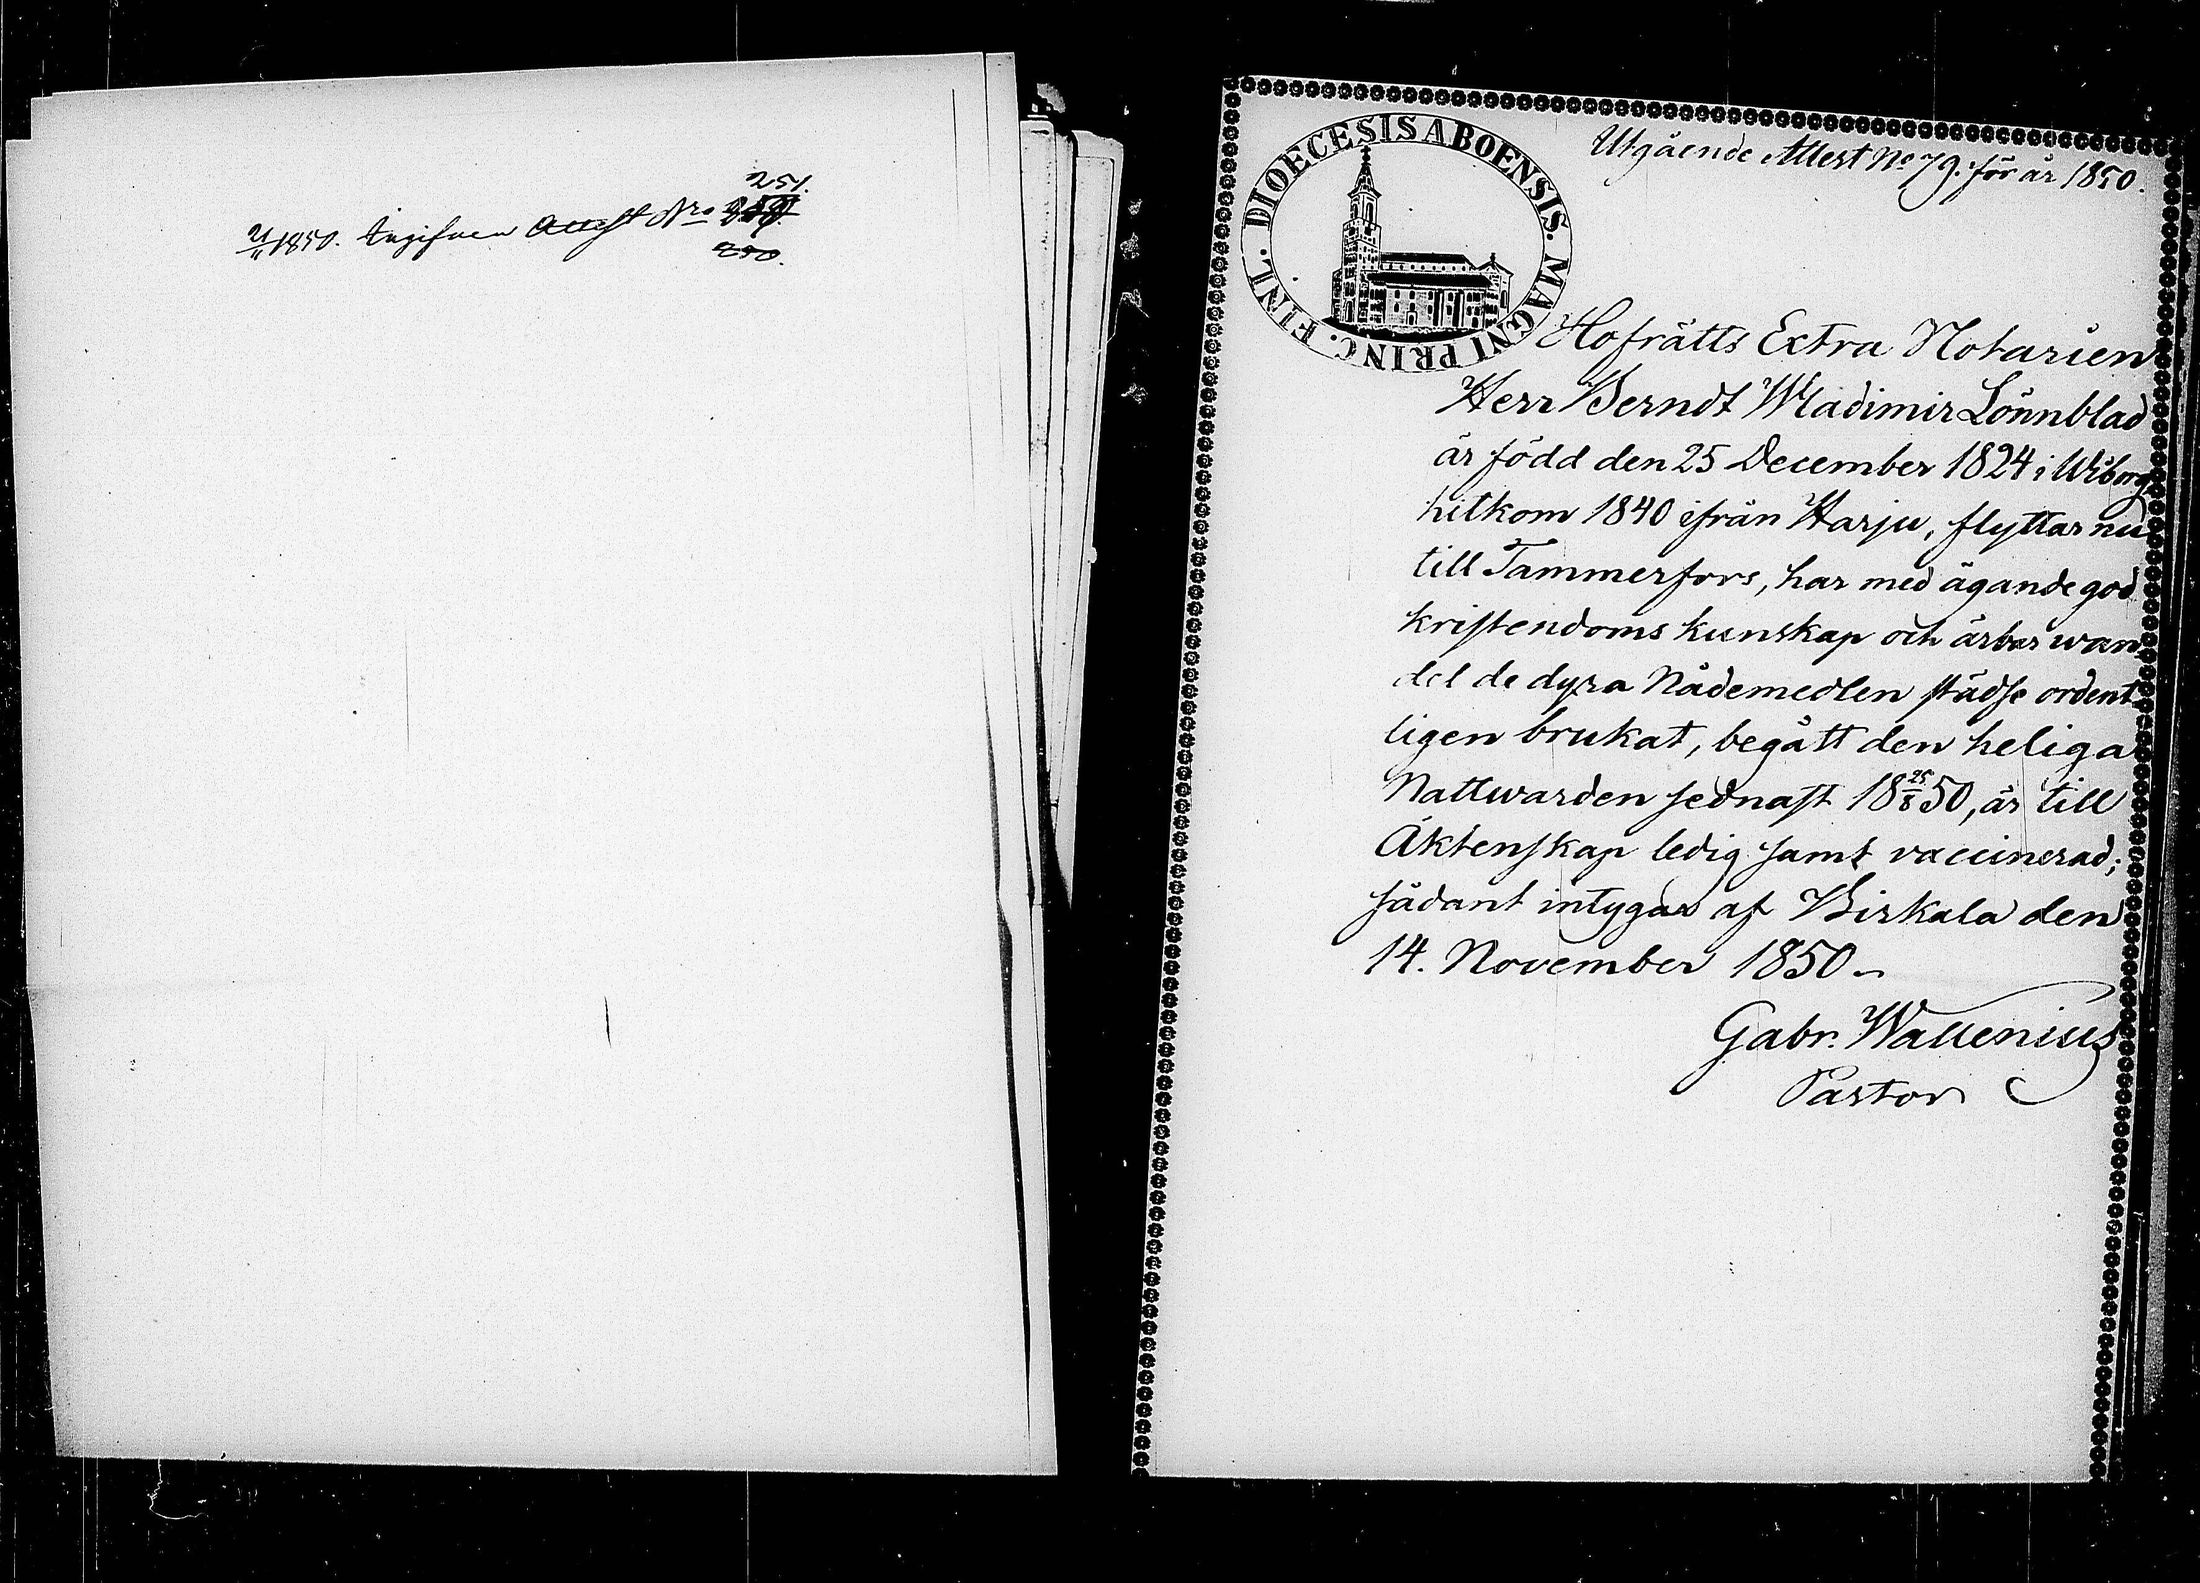 251.
21/11 1850. Ingifven Attest Nro
250.
DIOECESIS ABOENSIS. MAGNI PRINC. FINL.
Utgående Attest No 79. för år 1850.
Hofrätts Extra Notarien
Herr Berndt Wladimir Lönnblad
är född den 25 December 1824 i Wiborg,
hitkom 1840 ifrån Harju, flyttar nu
till Tammerfors, har med ägande god
kristendoms kunskap och ärbar wan-
del de dyra Nådemedlen städse ordent-
ligen brukat, begått den heliga
Nattwarden sednast 18 25/8 50, är till
Äktenskap ledig samt vaccinerad;
sådant intygar af Birkala den
14. November 1850
Gabr. Wallenius
Pastor